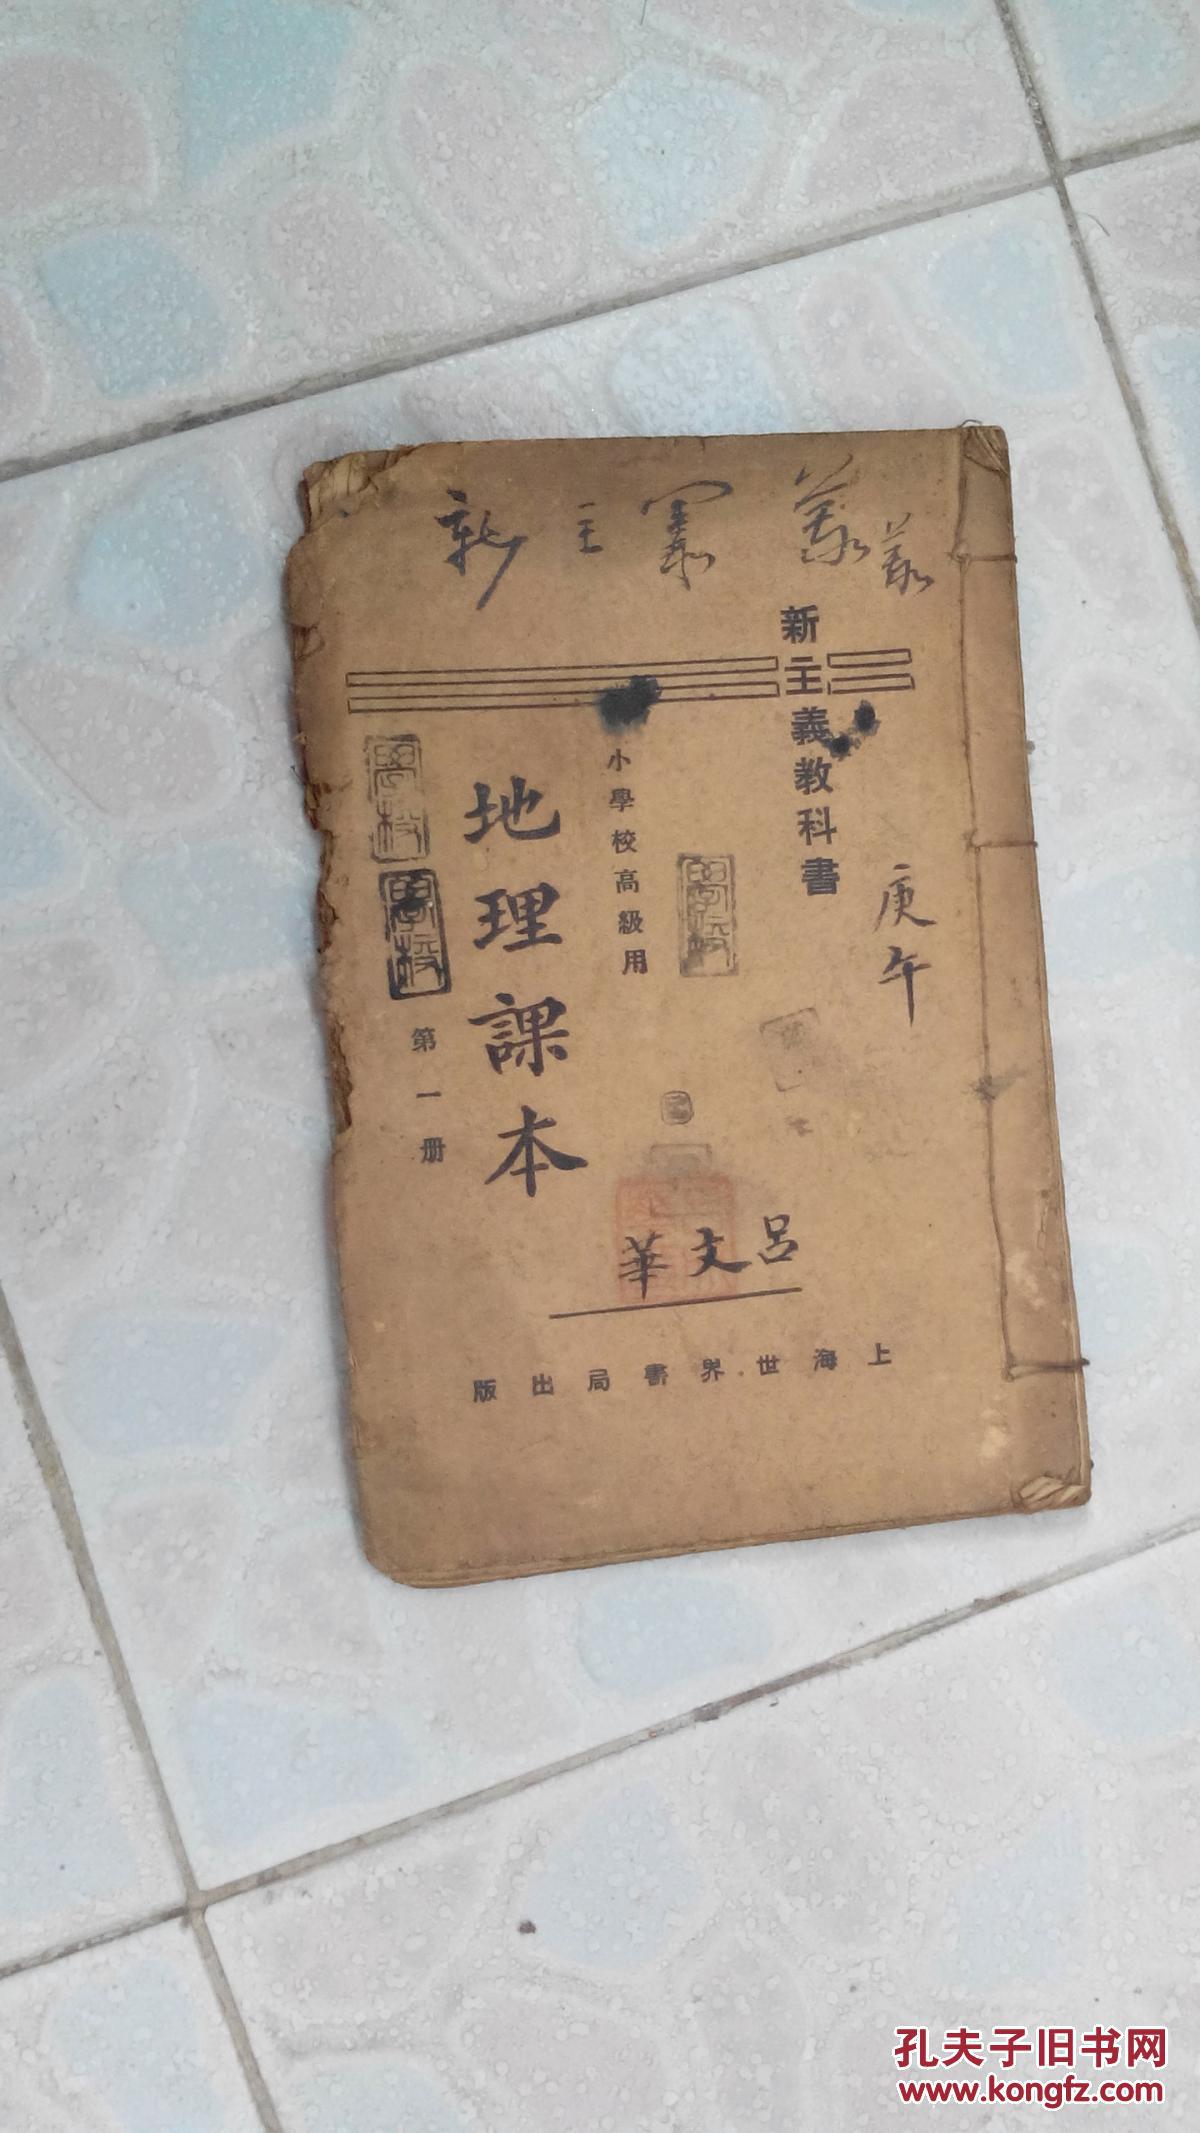 新主義
新主義教科書
庚午
小學校高級用
學校
地理課本
學校
學校
第一册
呂文華
上海世界書局出版
孔夫子旧书网
www.kongfz.com